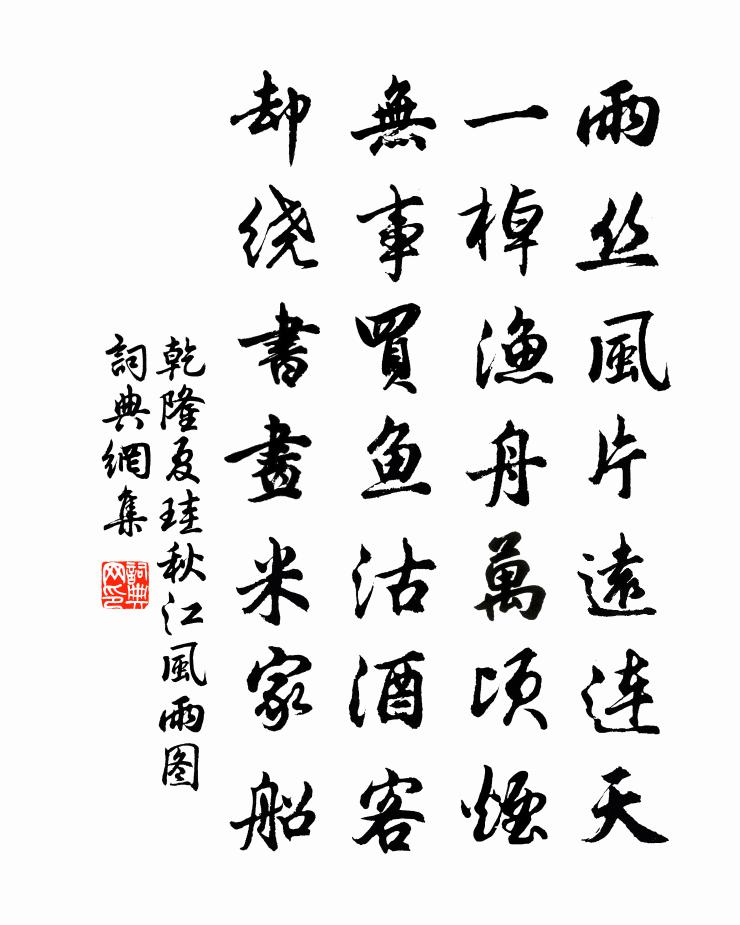 雨丝風片遠连天
一棹漁舟萬顷煙
無事買鱼沽酒客
却绕書畫米家船
乾隆夏珪秋江風雨图
詞典網集
詞典
网印